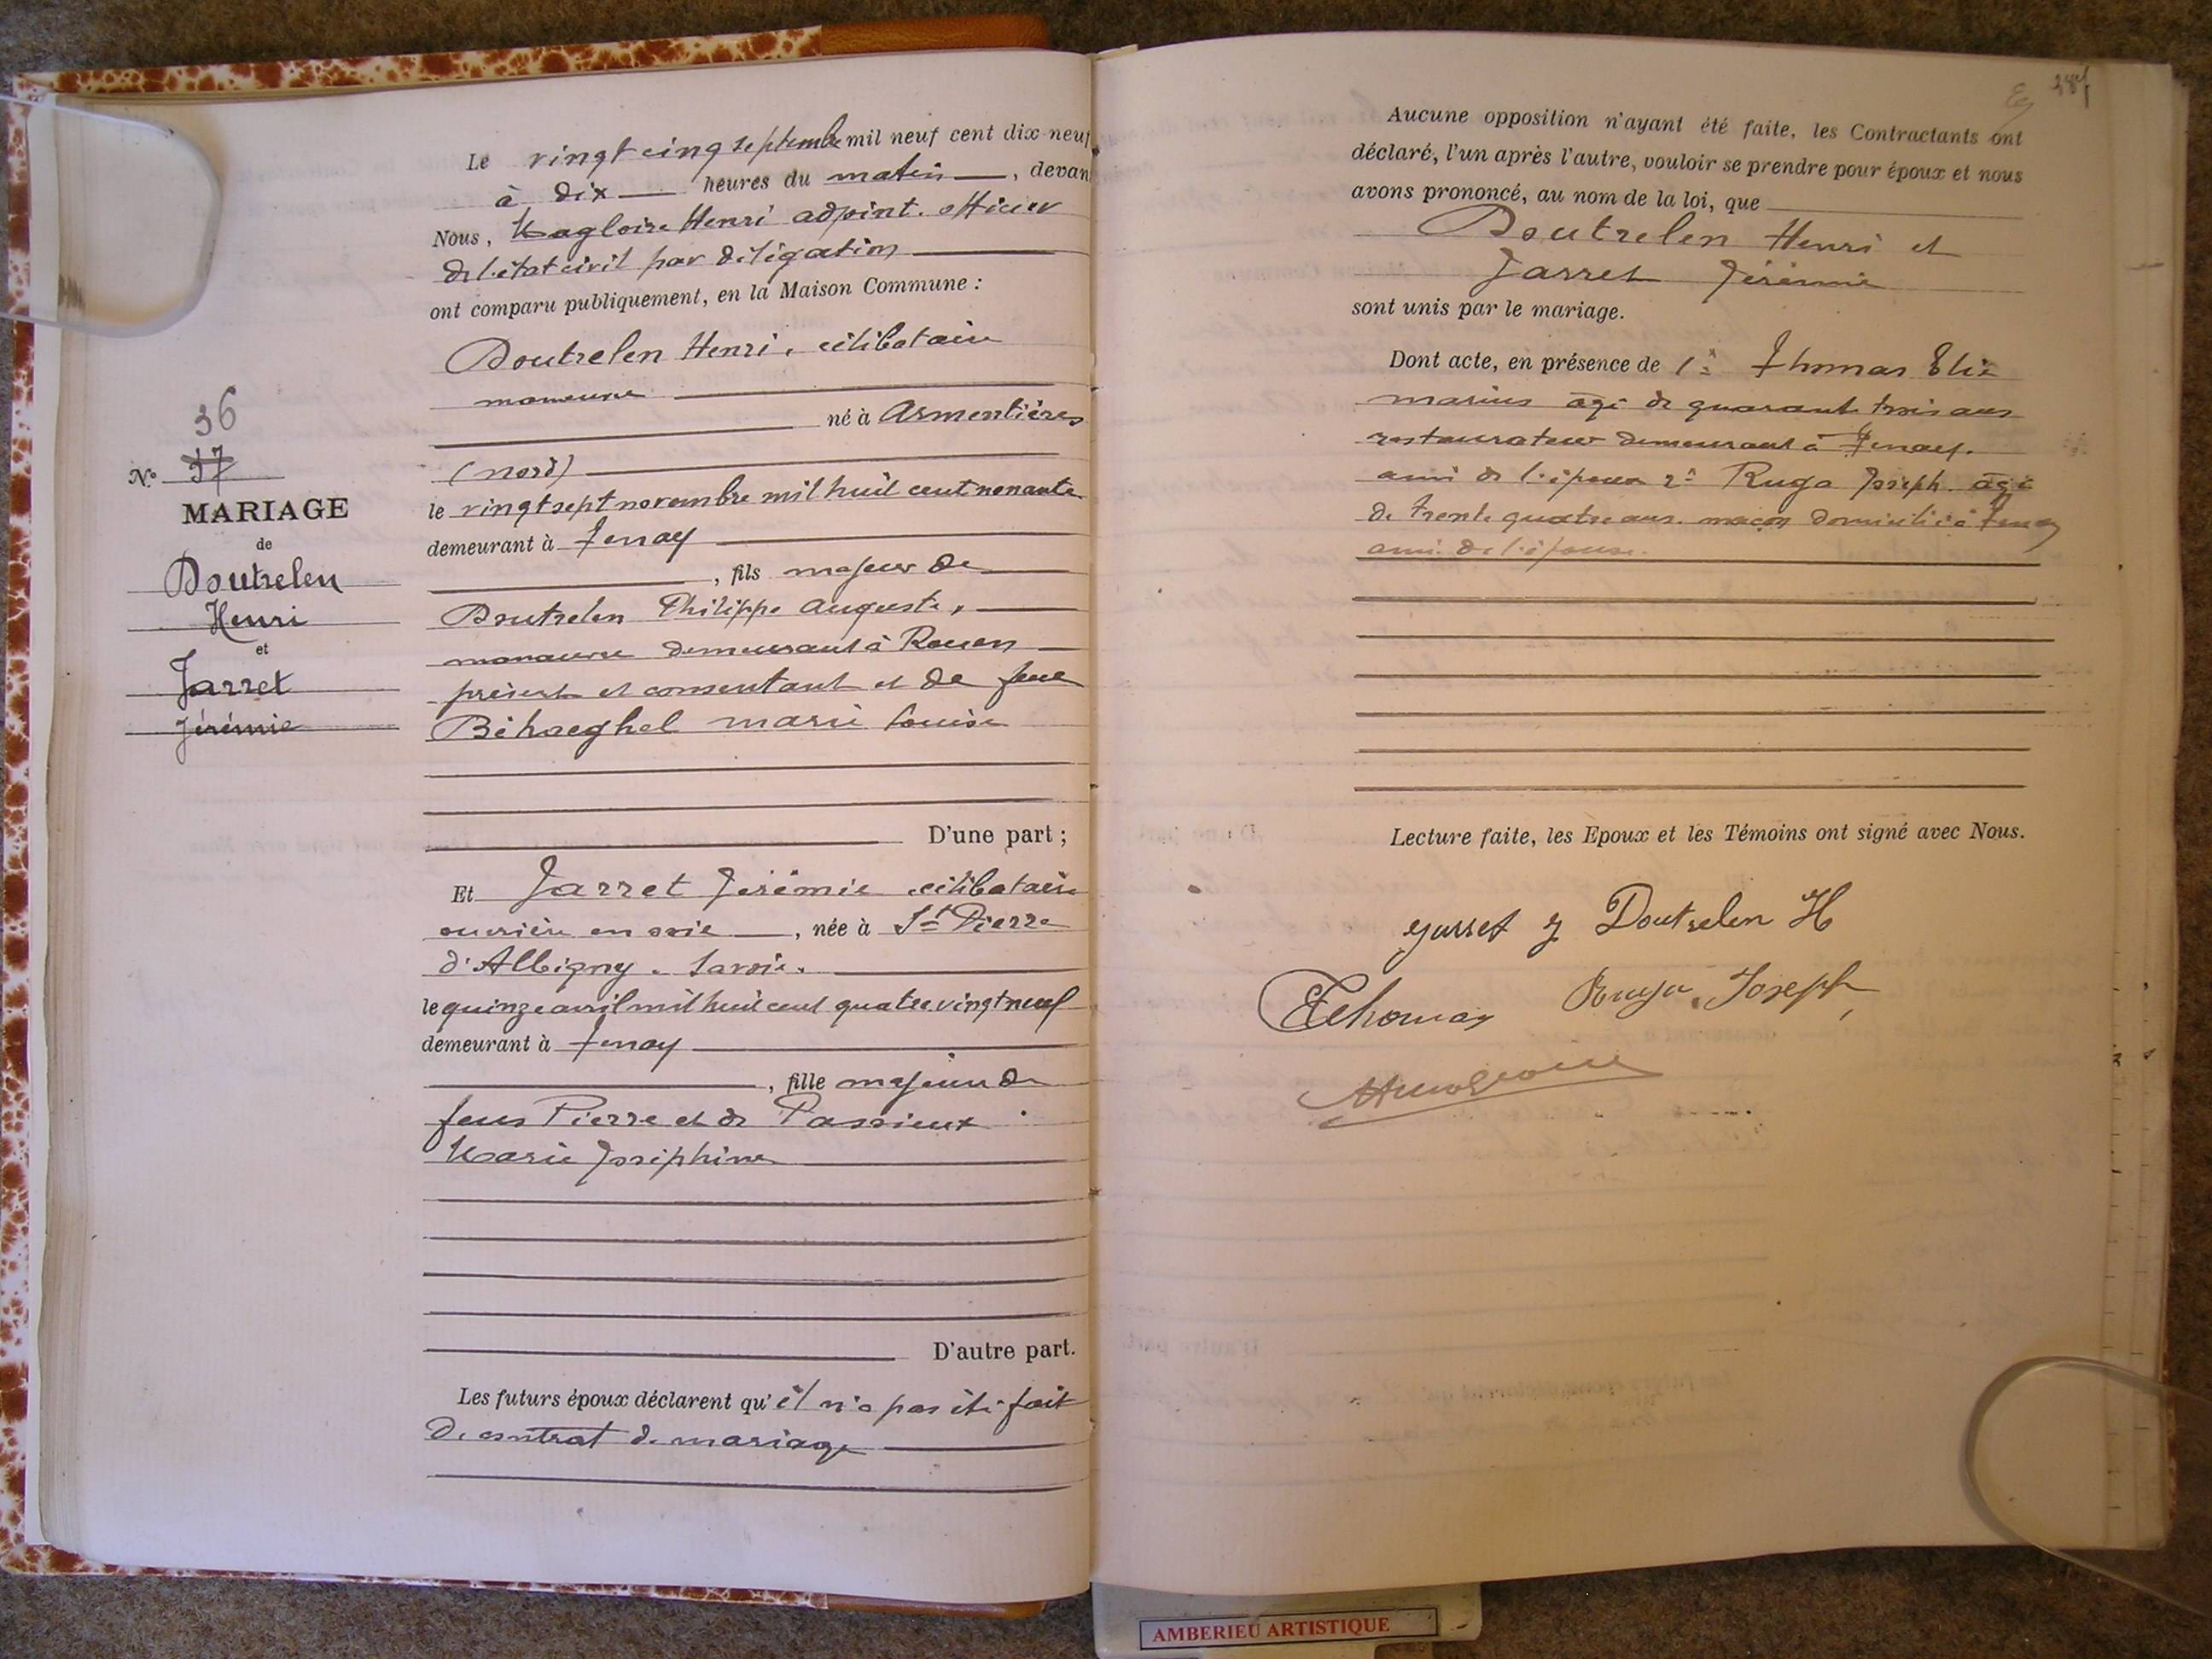 Le vingt cinq septembre mil neuf cent dix-neuf
à dix heures du matin, devan
Nous, Magloire Henri adjoint. officier
de l'état civil par délégation
ont comparu publiquement, en la Maison Commune :
Doutrelen Henri, célibataire
manœuvre
né à Armentières
(nord)
le vingt sept novembre mil huit cent nonante
demeurant à Tenay
, fils majeur de
Doutrelen Philippe Auguste,
manœuvre demeurant à Rouen
présent et consentant et de feue
Béhaeghel marie Louise
D'une part ;
36
N° 37
MARIAGE
de
Doutrelen
Henri
et
Jarret
Jérémie
Et Jarret Jérémie célibataire
ouvrière en soie, née à St Pierre
d'Albigny. Savoie.
le quinze avril mil huit cent quatre vingt neuf
demeurant à Tenay
, fille majeure de
feus Pierre et de Passieux
Marie Joséphine
D'autre part.
Les futurs époux déclarent qu'il n'a pas été fait
de contrat de mariage
284
Aucune opposition n'ayant été faite, les Contractants ont
déclaré, l'un après l'autre, vouloir se prendre pour époux et nous
avons prononcé, au nom de la loi, que
Doutrelen Henri et
Jarret Jérémie
sont unis par le mariage.
Dont acte, en présence de 1° Thomas Elie
marius âgé de quarante trois ans
restaurateur demeurant à Tenay.
ami de l'époux 2° Ruga Joseph âgé
de trente quatre ans. maçon domicilié à Tenay
ami de l'épouse.
Lecture faite, les Epoux et les Témoins ont signé avec Nous.
Jarret J Doutrelen H
EThomas Ruga Joseph
AMBERIEU ARTISTIQUE